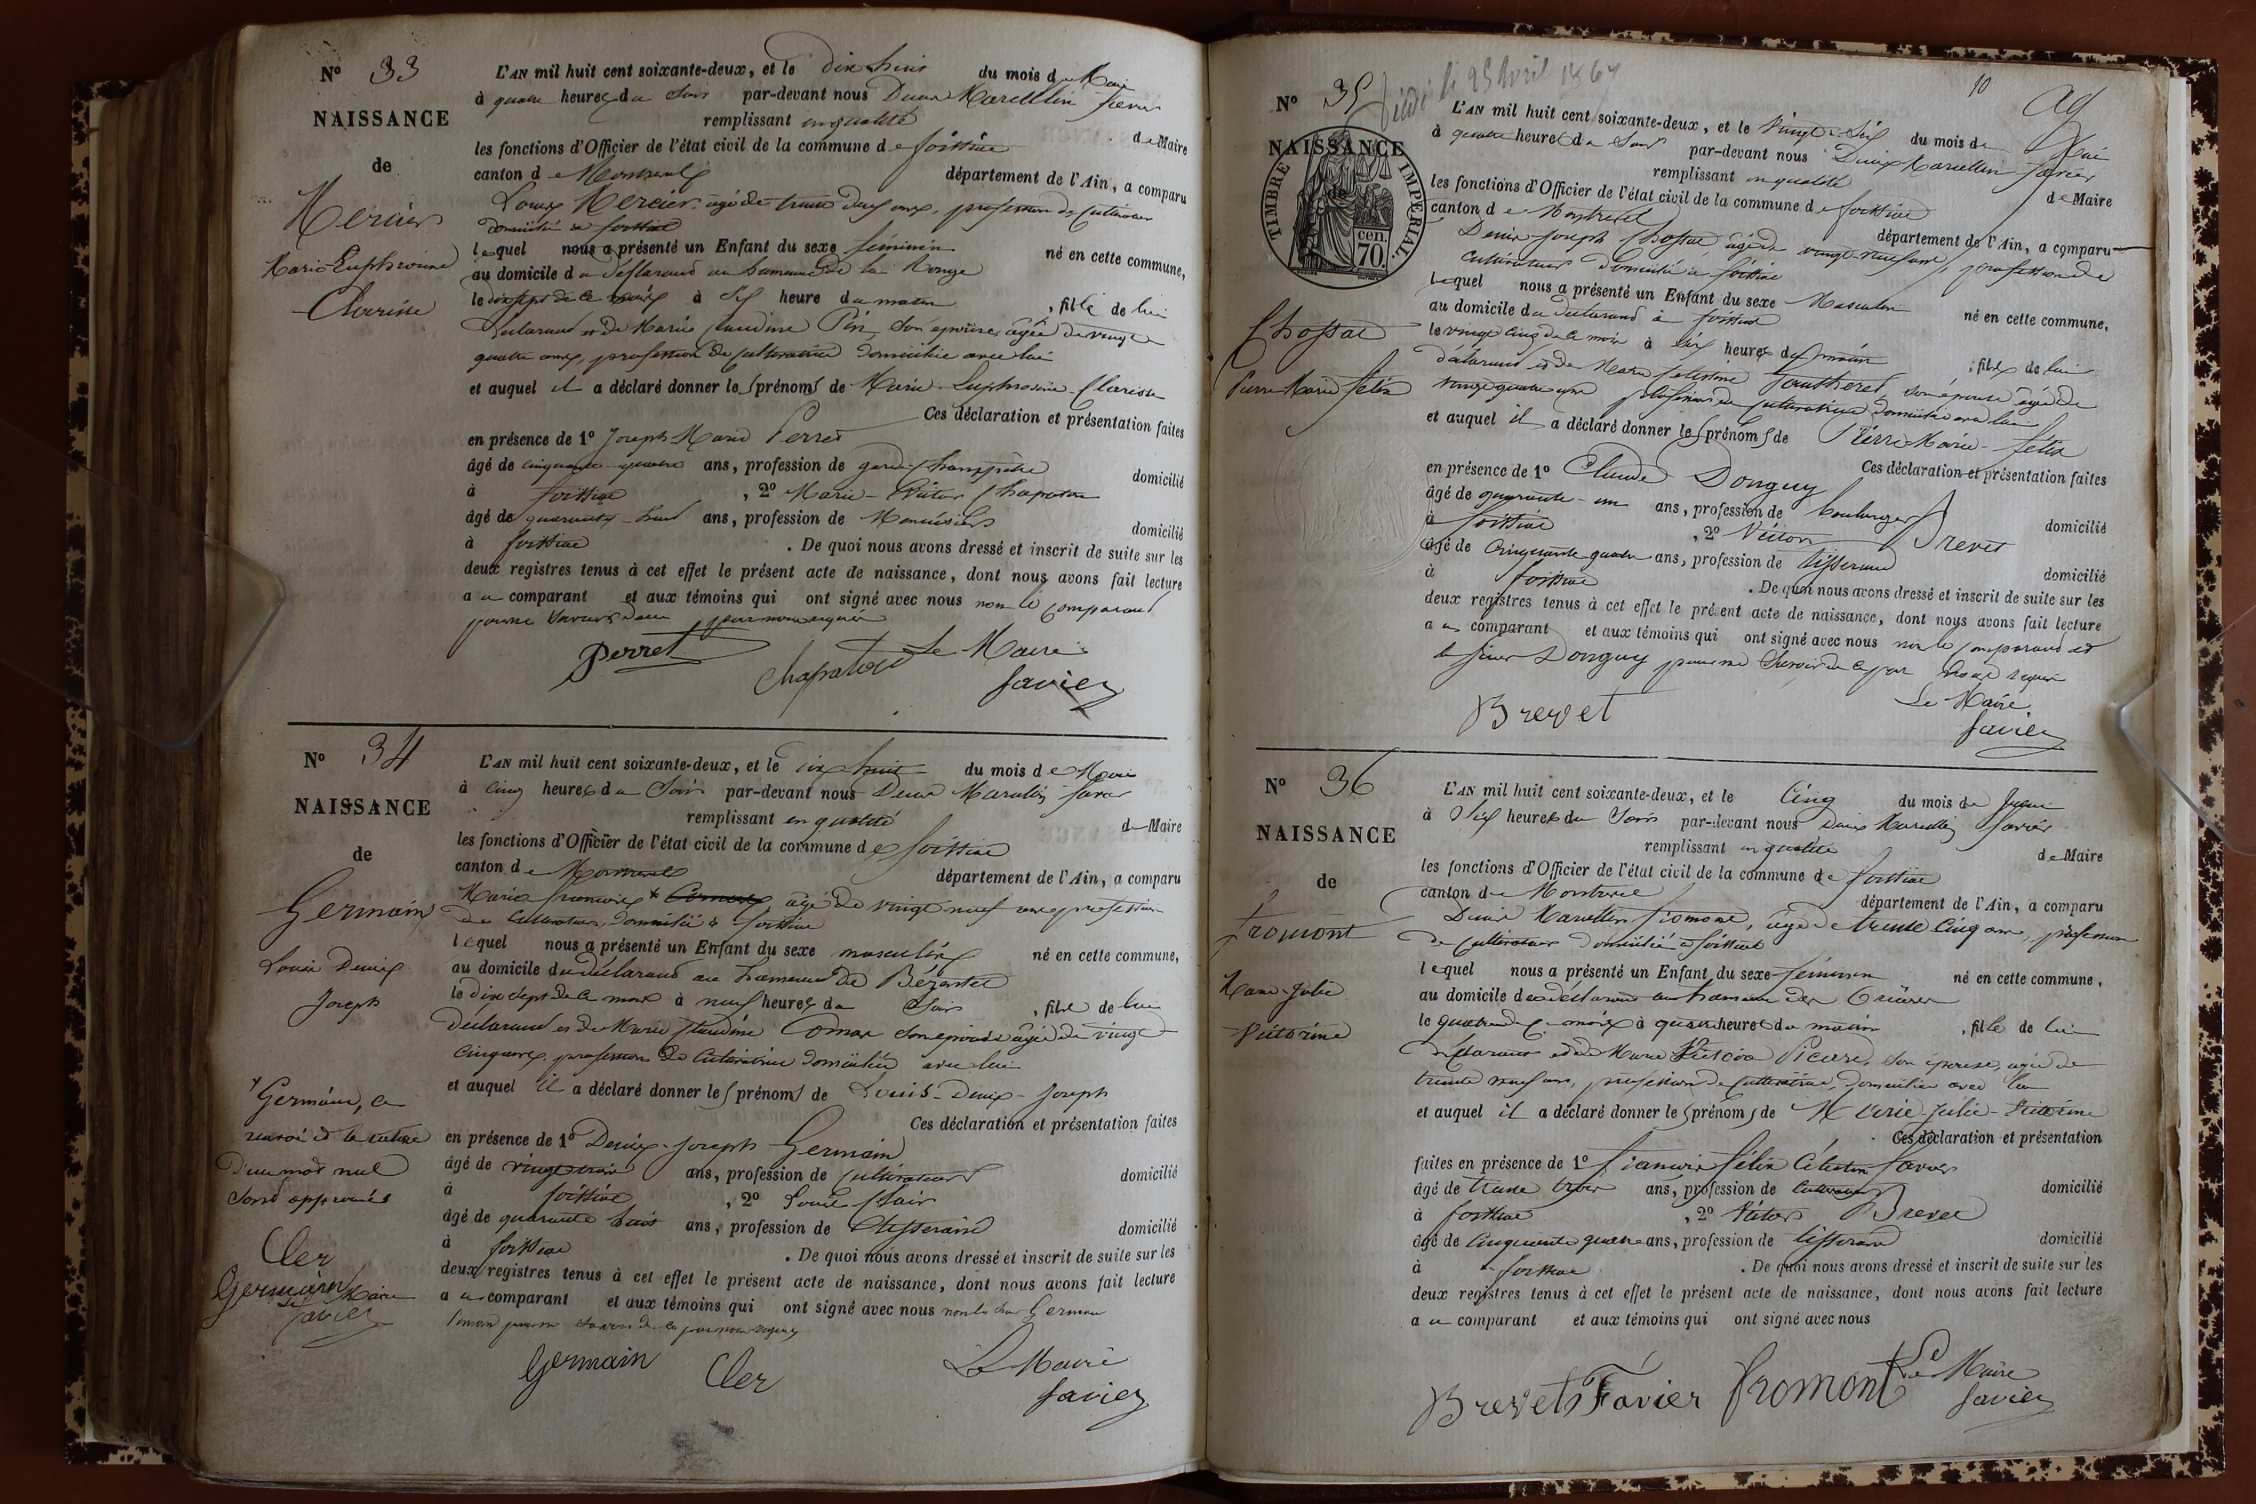 N° 33
NAISSANCE
de
Mercier
Marie Euphrosine
Clarisse
L'AN mil huit cent soixante-deux, et le dix huit du mois de Mai
à quatre heures du Soir par-devant nous Denis Marcellin Favier
remplissant en qualité de Maire
les fonctions d'Officier de l'état civil de la commune de foissiat
canton de Montrevel département de l'Ain, a comparu
Louis Mercier âgé de trente deux ans, profession de Cultivateur
domicilié à foissiat
lequel nous a présenté un Enfant du sexe féminin né en cette commune,
au domicile du déclarant au hameau de la
le dix sept de ce mois à Six heure du matin, fille de lui
déclarant et de Marie Claudine Pin, son épouse, âgée de vingt
quatre ans, profession de cultivatrice domiciliée avec lui
et auquel il a déclaré donner les prénoms de Marie-Euphrosine-Clarisse
Ces déclaration et présentation faites
en présence de 1° Joseph Marie Perret
âgé de cinquante-quatre ans, profession de garde champêtre domicilié
à foissiat, 2° Marie-Victor Chapaton
âgé de quarante-huit ans, profession de Menuisier domicilié
à foissiat. De quoi nous avons dressé et inscrit de suite sur les
deux registres tenus à cet effet le présent acte de naissance, dont nous avons fait lecture
au comparant et aux témoins qui ont signé avec nous non le comparant
pour ne savoir de ce par nous requis
Perret Chapaton Le Maire
Favier
N° 34
NAISSANCE
de
Germain
Louis Denis
Joseph
L'AN mil huit cent soixante-deux, et le dix huit du mois de Mai
à cinq heures du Soir par-devant nous Denis Marcellin Favier
remplissant en qualité de Maire
les fonctions d'Officier de l'état civil de la commune de foissiat
canton de Montrevel département de l'Ain, a comparu
Marie françois × âgé de vingt neuf ans profession
de Cultivateur, domicilié à foissiat
lequel nous a présenté un Enfant du sexe masculin né en cette commune,
au domicile du déclarant au hameau de Bézentet
le dix sept de ce mois à neuf heures du Soir, fils de lui
déclarant et de Marie Claudine Comax son épouse âgée de vingt
cinq ans, profession de Cultivatrice domiciliée avec lui
et auquel il a déclaré donner les prénoms de Louis-Denis-Joseph
Ces déclaration et présentation faites
en présence de 1° Denis-Joseph Germain
âgé de vingt trois ans, profession de Cultivateur domicilié
à foissiat, 2° Louis Clair
âgé de quarante huit ans, profession de tisserand domicilié
à foissiat. De quoi nous avons dressé et inscrit de suite sur les
deux registres tenus à cet effet le présent acte de naissance, dont nous avons fait lecture
au comparant et aux témoins qui ont signé avec nous non le sieur Germain
pour ne savoir de ce par nous requis
× Germain, ce
renvoi et la rature
d'un mot nul
sont approuvés
Cler
Germain Le Maire
Favier
Germain Cler Le Maire
Favier
10
N° 35 décédé le 25 Avril 1864
NAISSANCE
de
TIMBRE IMPERIAL.
70 cen.
Chossat
Pierre Marie Félix
L'AN mil huit cent soixante-deux, et le Vingt-Six du mois de Mai
à quatre heures du Soir par-devant nous Denis Marcellin Favier
remplissant en qualité de Maire
les fonctions d'Officier de l'état civil de la commune de foissiat
canton de Montrevel département de l'Ain, a comparu
Denis-Joseph Chossat, âgé de vingt-neuf ans, profession de
cultivateur domicilié à foissiat
lequel nous a présenté un Enfant du sexe Masculin né en cette commune,
au domicile du déclarant à foissiat
le vingt cinq de ce mois à six heures du matin, fils de lui
déclarant et de Marie Célestine son épouse âgée de
vingt quatre ans profession de cultivatrice domiciliée avec lui
et auquel il a déclaré donner les prénoms de Pierre-Marie-Félix
Ces déclaration et présentation faites
en présence de 1° Claude Donguy
âgé de quarante-un ans, profession de boulanger domicilié
à foissiat, 2° Victor Brevet
âgé de Cinquante quatre ans, profession de tisserand domicilié
à foissiat. De quoi nous avons dressé et inscrit de suite sur les
deux registres tenus à cet effet le présent acte de naissance, dont nous avons fait lecture
au comparant et aux témoins qui ont signé avec nous non le comparant et
le sieur Donguy pour ne savoir de ce par nous requis
Brevet Le Maire
Favier
N° 36
NAISSANCE
de
Fromont
Marie-Julie
Victorine
L'AN mil huit cent soixante-deux, et le Cinq du mois de Juin
à Six heures du Soir par-devant nous Denis Marcellin Favier
remplissant en qualité de Maire
les fonctions d'Officier de l'état civil de la commune de foissiat
canton de Montrevel département de l'Ain, a comparu
Denis Marcellin Fromont, âgé de trente Cinq ans, profession
de Cultivateur domicilié à foissiat
lequel nous a présenté un Enfant du sexe féminin né en cette commune,
au domicile du déclarant au hameau des
le quatre de ce mois à quatre heures du matin, fille de lui
déclarant et de Marie Picard, son épouse, âgée de
trente neuf ans, profession de Cultivatrice, domiciliée avec lui
et auquel il a déclaré donner les prénoms de Marie-Julie-Victorine
Ces déclaration et présentation
faites en présence de 1° françois Félix Célestin Favier
âgé de trente trois ans, profession de Cultivateur domicilié
à foissiat, 2° Victor Brevet
âgé de Cinquante quatre ans, profession de tisserand domicilié
à foissiat. De quoi nous avons dressé et inscrit de suite sur les
deux registres tenus à cet effet le présent acte de naissance, dont nous avons fait lecture
au comparant et aux témoins qui ont signé avec nous
Brevet Favier Fromont Le Maire
Favier